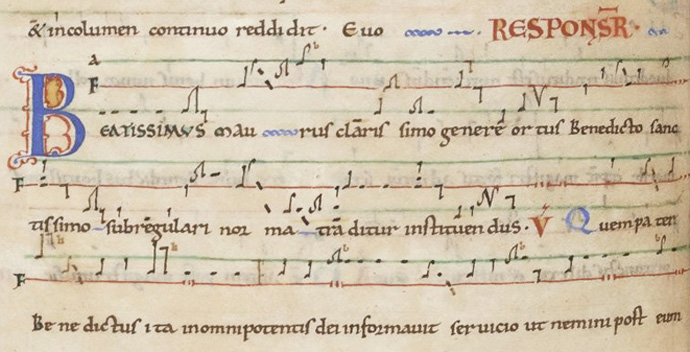 & incolumen continuo reddidit · Euo RESPONSR.
BEATISSIMVS mau rus claris simo genere ortus Benedicto sanc
tissimo subregulari nor ma tradi ditur instituendus. V Quem pa ter
Be ne dictus ita inomnipotentis dei informauit seruicio ut nemini post eum